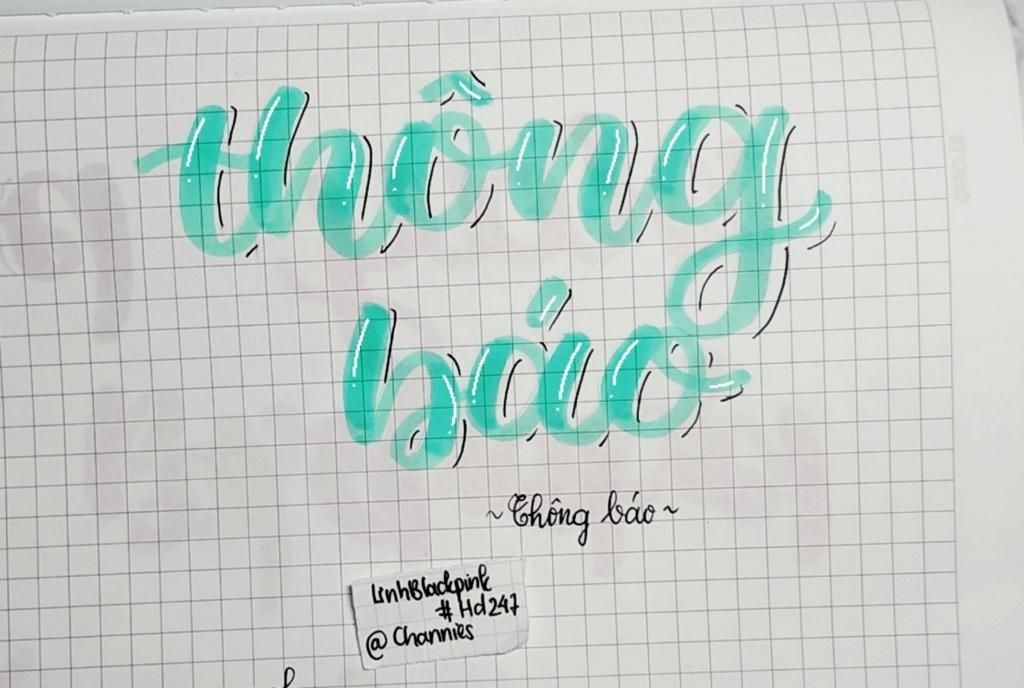 thông
báo
~Thông báo~
LinhBlackpink
#Hd247
@Channies